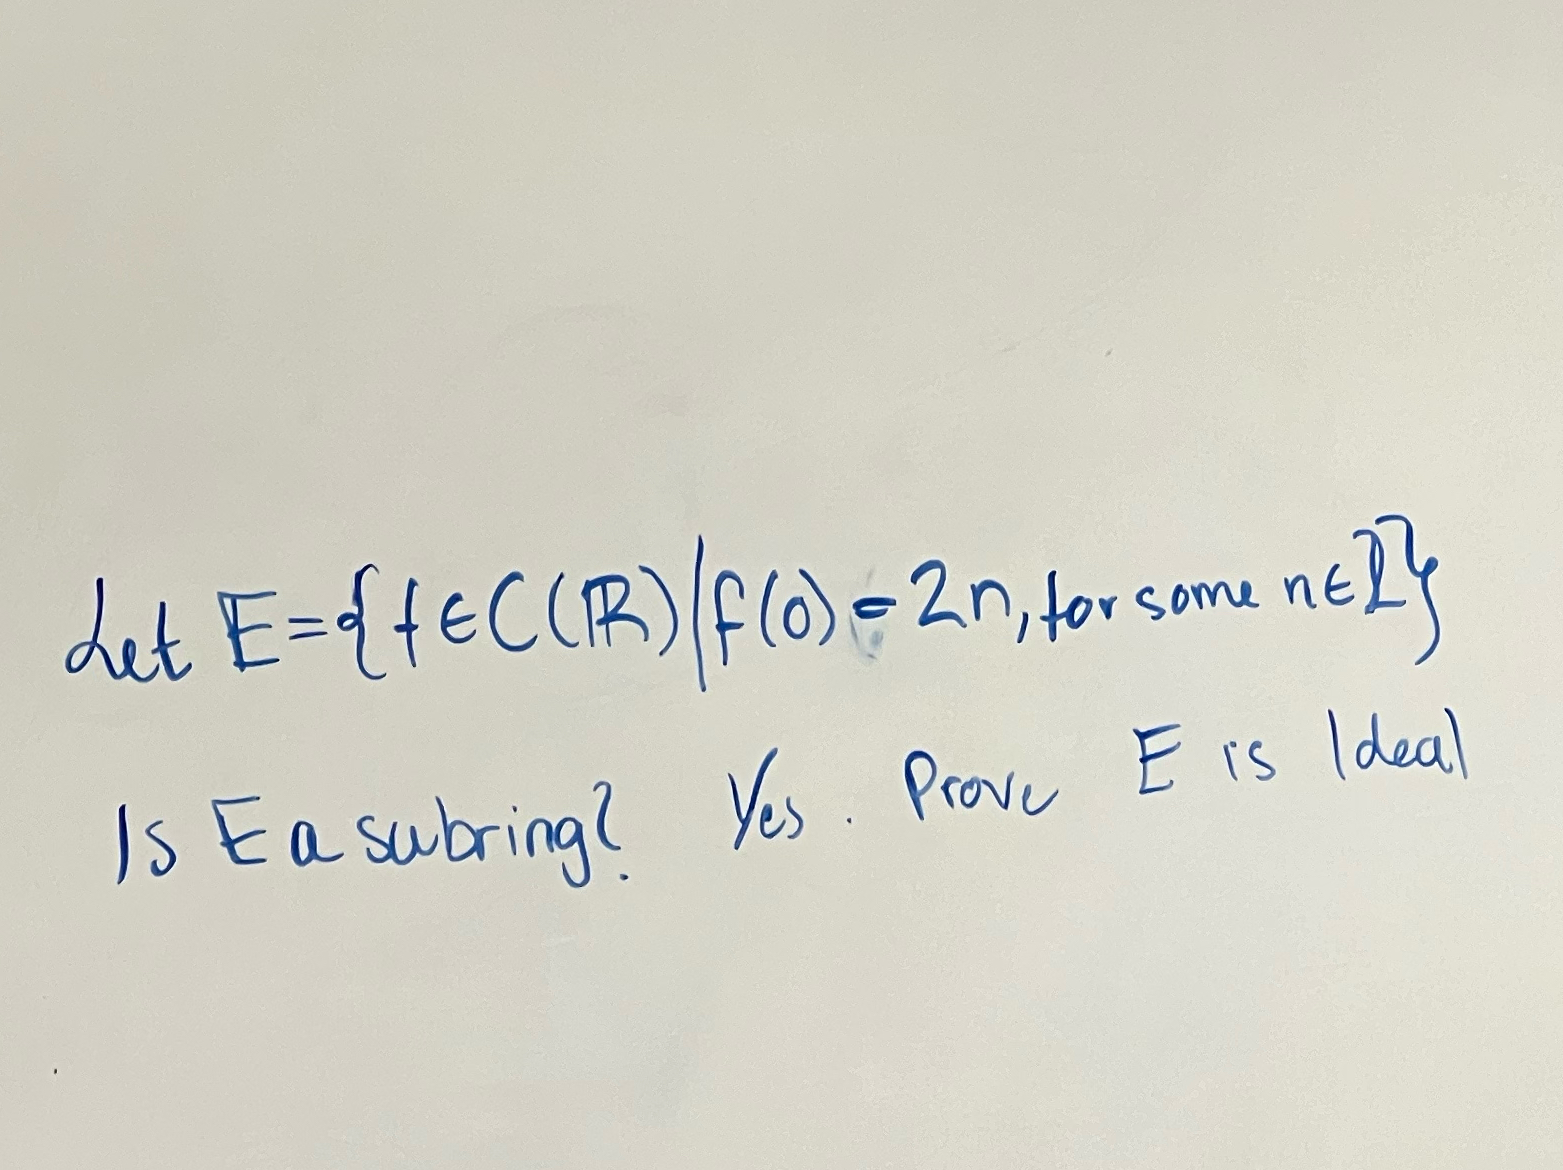 Let E={f∈C(ℝ)|f(0)=2n, for some n∈ℤ}
Is E a subring? Yes. Prove E is Ideal